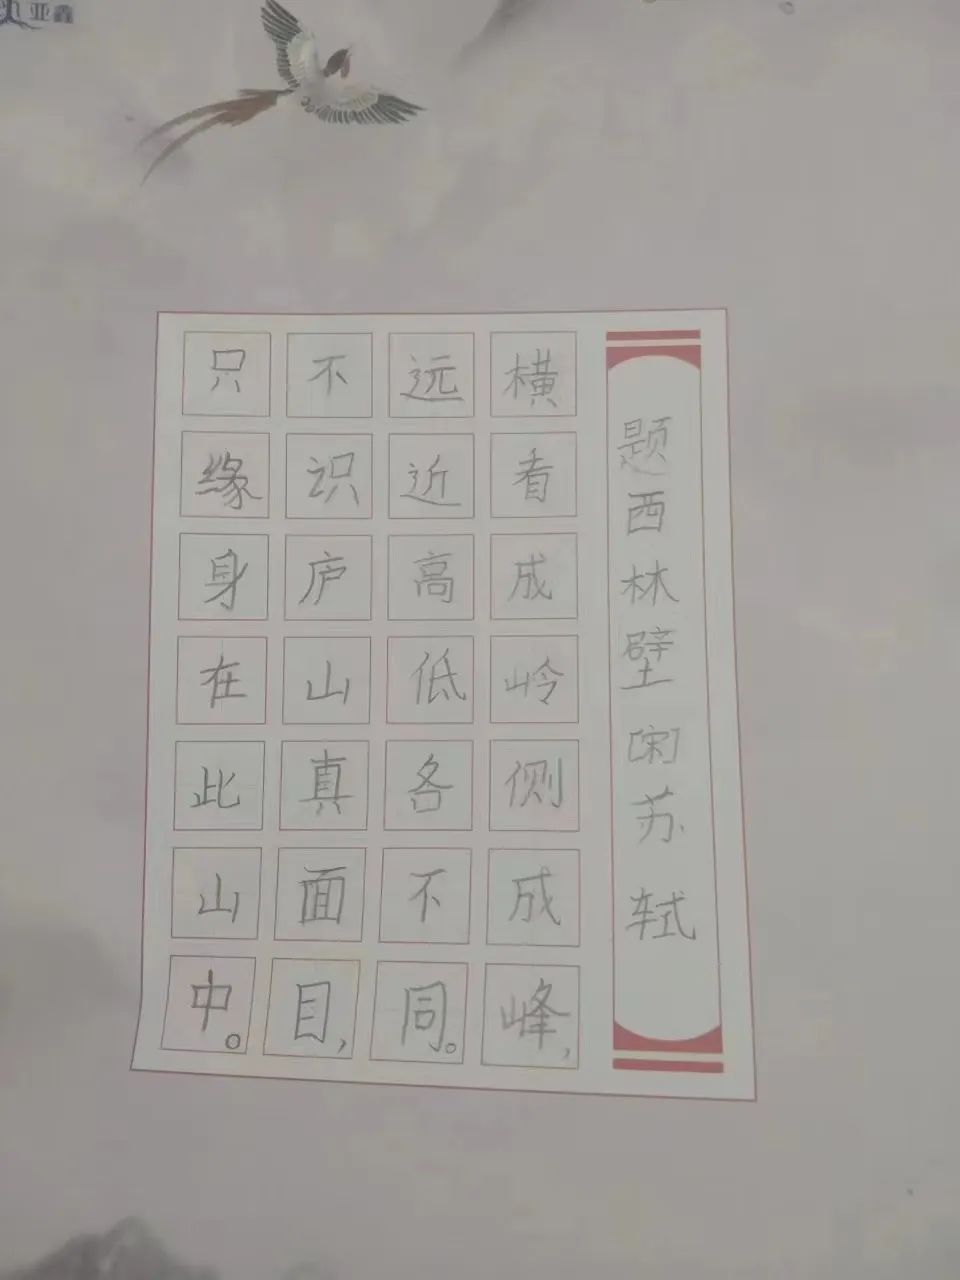 亚鑫
题西林壁 [宋] 苏轼
横看成岭侧成峰，
远近高低各不同。
不识庐山真面目，
只缘身在此山中。